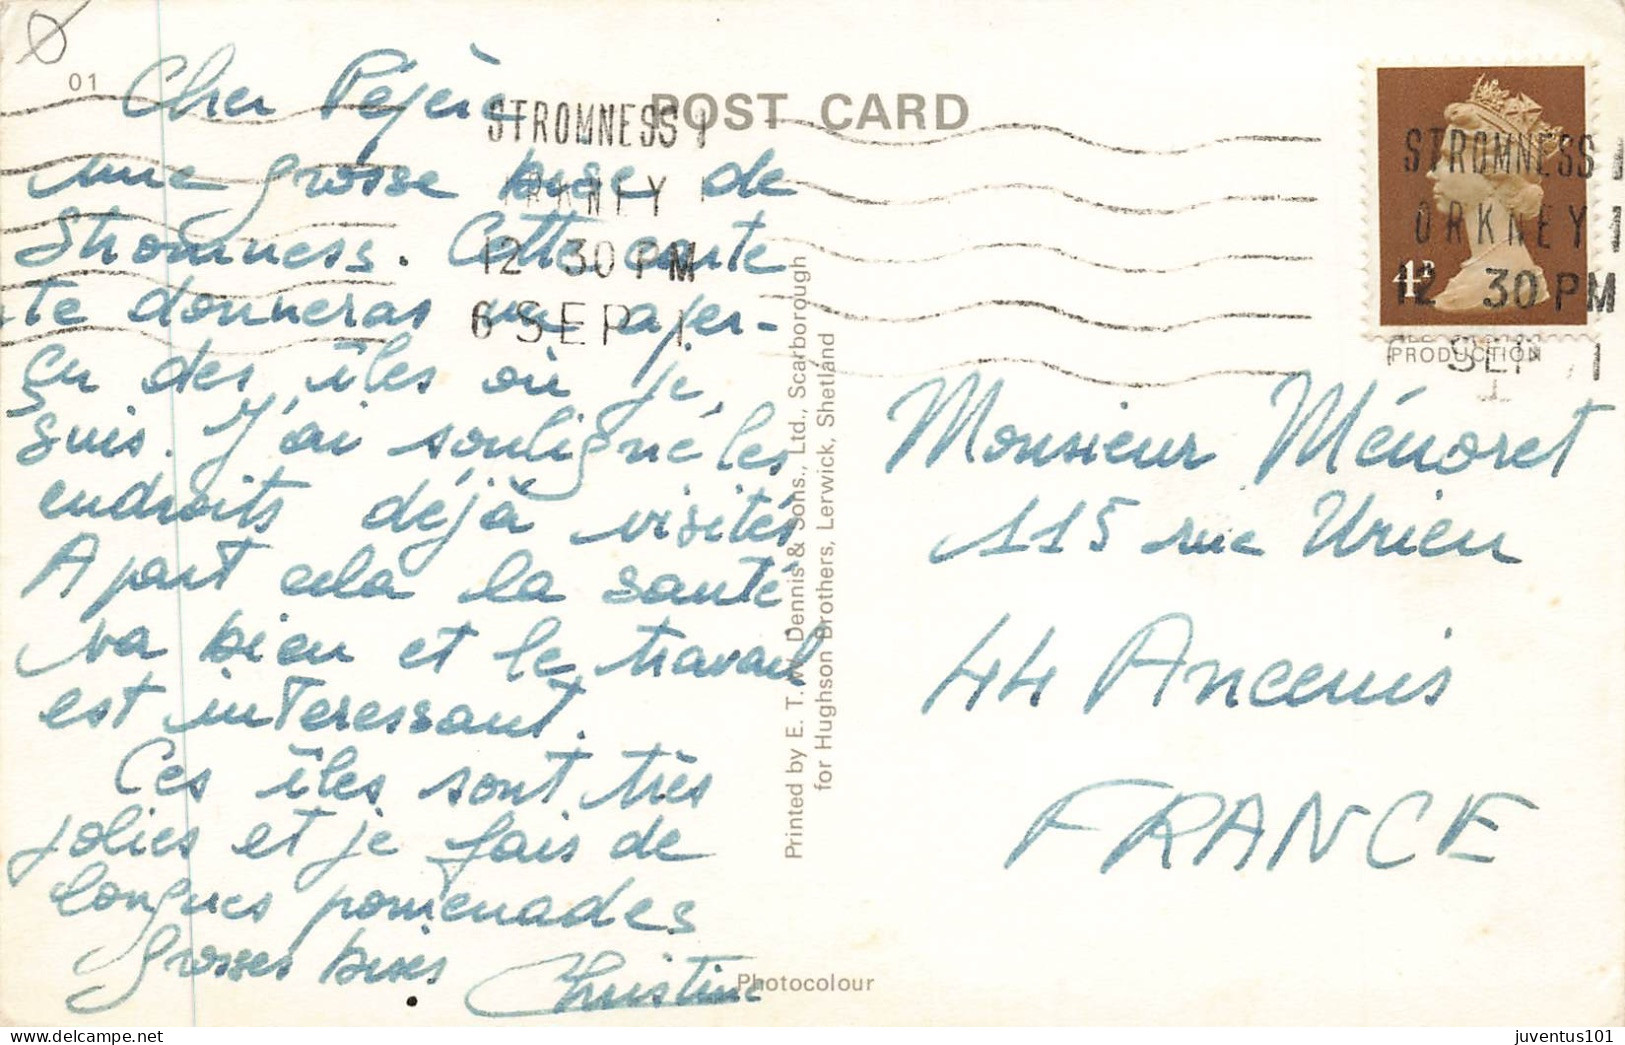 01
Cher Pépère
une grosse bise de
Stromness. Cette carte
te donneras un aper-
çu des îles où je
suis. J'ai souligné les
endroits déjà visités
A part cela la santé
va bien et le travail
est interessant.
Ces îles sont très
jolies et je fais de
longues promenades
Grosses bises Christine
POST CARD
STROMNESS
ORKNEY
12 30 PM
6 SEP
Printed by E. T. W. Dennis & Sons., Ltd., Scarborough
for Hughson Brothers, Lerwick, Shetland
Photocolour
STROMNESS
ORKNEY
12 30 PM
SEP
PRODUCTION
Monsieur Ménoret
115 rue Urien
44 Ancenis
FRANCE
juventus101